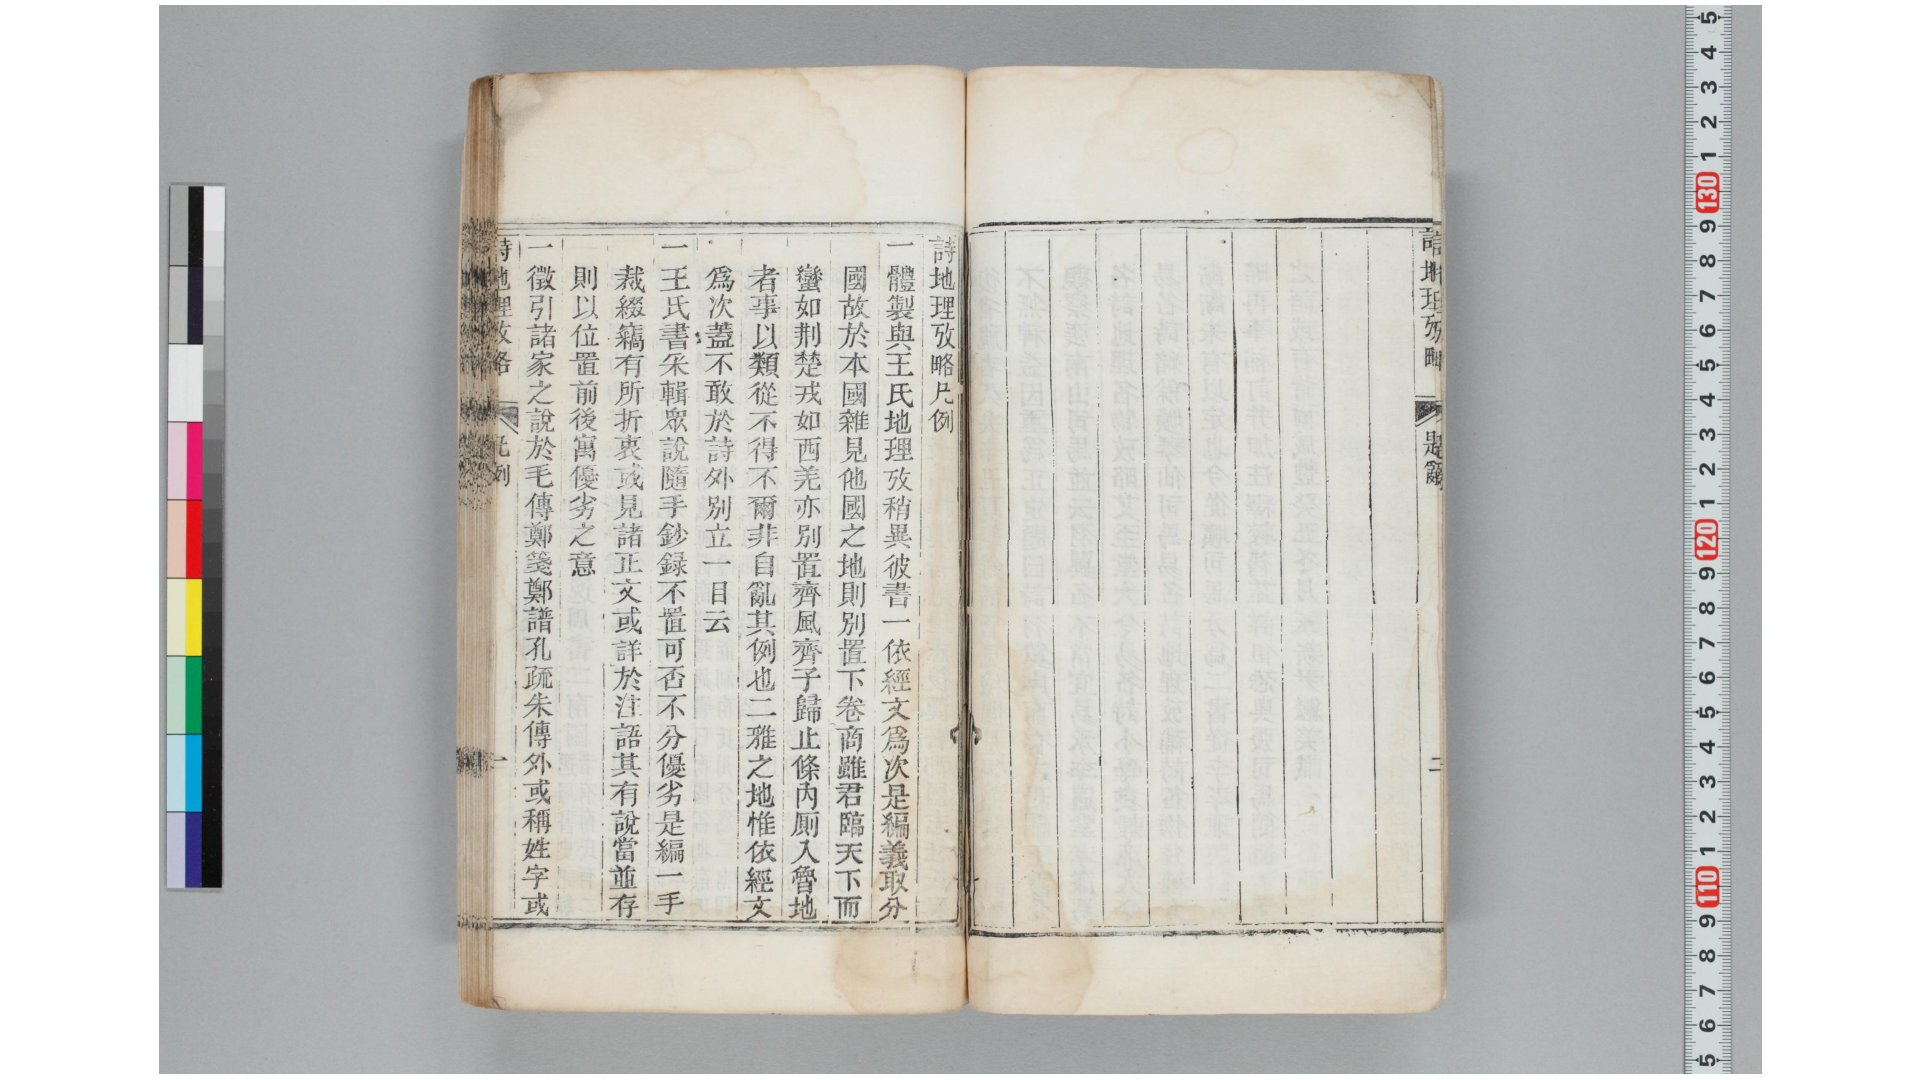 詩地理攷略
題辭
二
詩地理攷略凡例
一體製與王氏地理攷稍異彼書一依經文爲次是編義取分
國故於本國雜見他國之地則別置下卷商雖君臨天下而
蠻如荆楚戎如西羌亦別置齊風齊子歸止條內厠入魯地
者事以類從不得不爾非自亂其例也二雅之地惟依經文
爲次蓋不敢於詩外別立一目云
一王氏書采輯眾說隨手鈔録不置可否不分優劣是編一手
裁綴竊有所折衷或見諸正文或詳於注語其有說當並存
則以位置前後寓優劣之意
一徵引諸家之說於毛傳鄭箋鄭譜孔疏朱傳外或稱姓字或
詩地理攷略
凡例
一
5
4
3
2
1
130
9
8
7
6
5
4
3
2
1
120
9
8
7
6
5
4
3
2
1
110
9
8
7
6
5